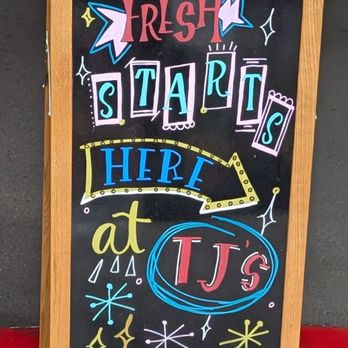 FRESH
STARTS
HERE
at
TJ's